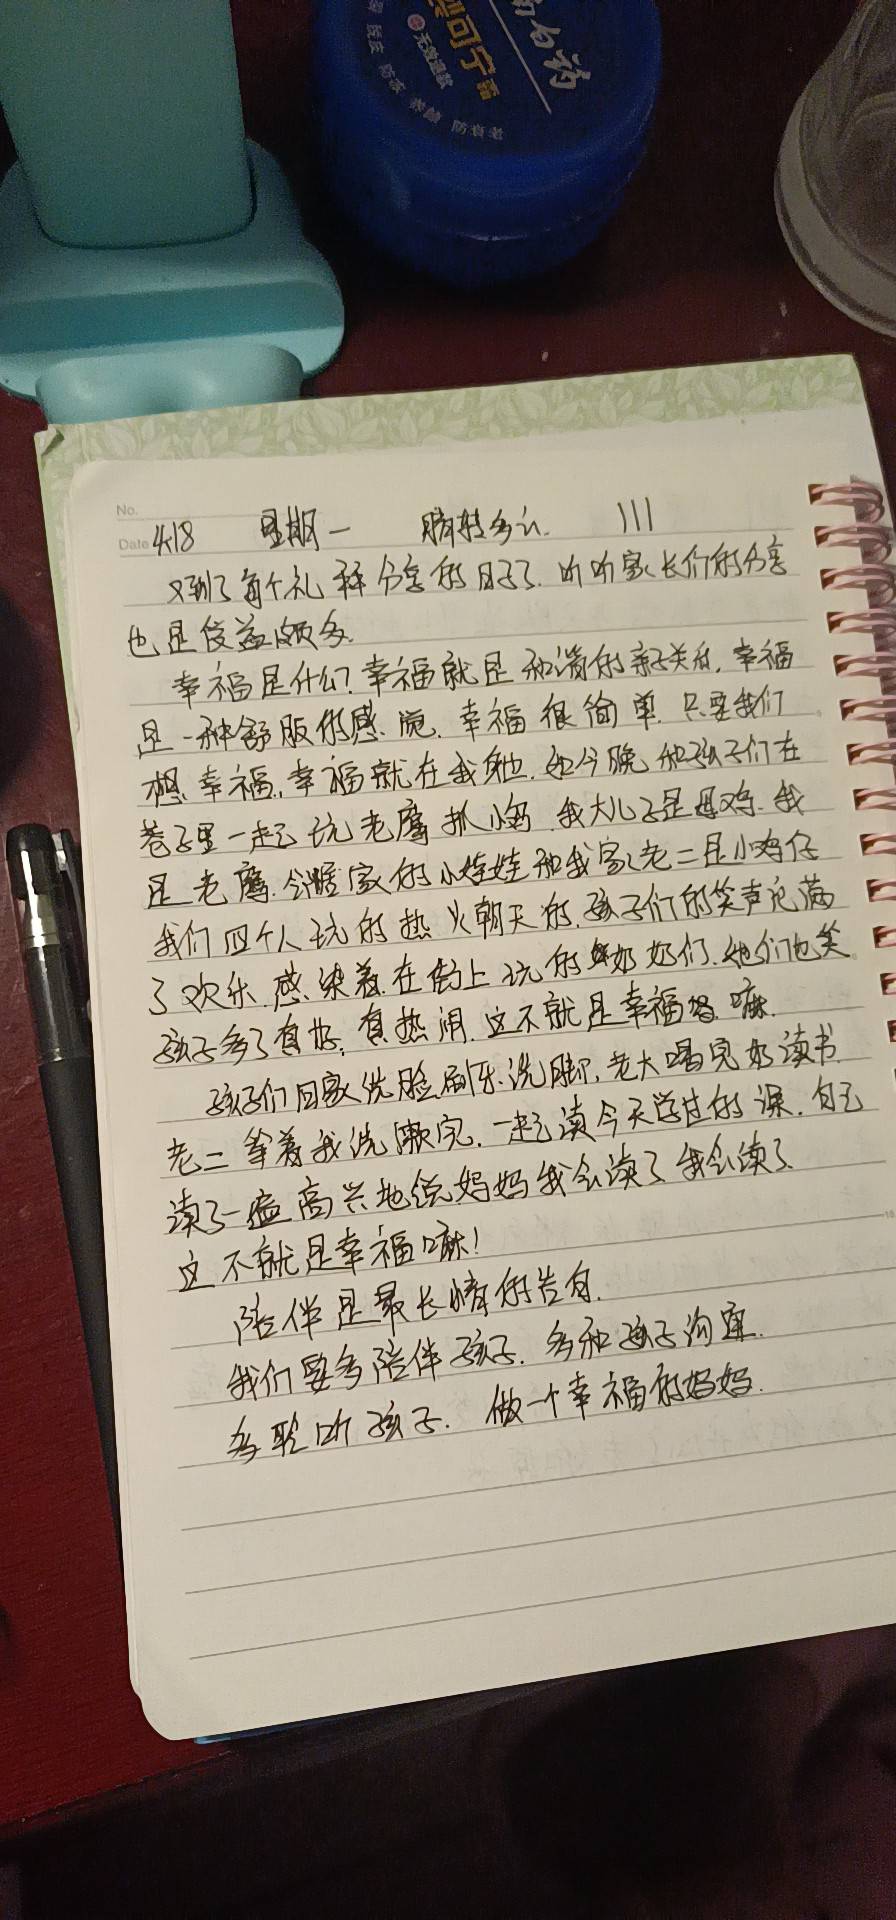 南白药
型可宁霜
无效退款
防冻 养颜 防衰老
No.
Date 4.18 星期一 晴转多云 111
又到了每个礼拜分享的日子了.听听家长们的分享
也是收益颇多.
幸福是什么?幸福就是和谐的亲子关系,幸福
是一种舒服的感觉.幸福很简单.只要我们
想幸福,幸福就在我身边.如今晚和孩子们在
巷子里一起玩老鹰抓小鸡.我大儿子是母鸡.我
是老鹰.家的小娃娃和我家老二是小鸡仔
我们四个人玩的热火朝天的.孩子们的笑声充满
了欢乐.感染着在街上玩的奶奶们.她们也笑
孩子多了真好,真热闹.这不就是幸福嘛.
孩子们回家洗脸刷牙.洗脚.老大喝完奶读书
老二等着我洗漱完.一起读今天学过的课.自己
读了一遍高兴地说妈妈我会读了我会读了
这不就是幸福嘛!
陪伴是最长情的告白.
我们要多陪伴孩子.多和孩子沟通.
多聆听孩子.做一个幸福的妈妈.